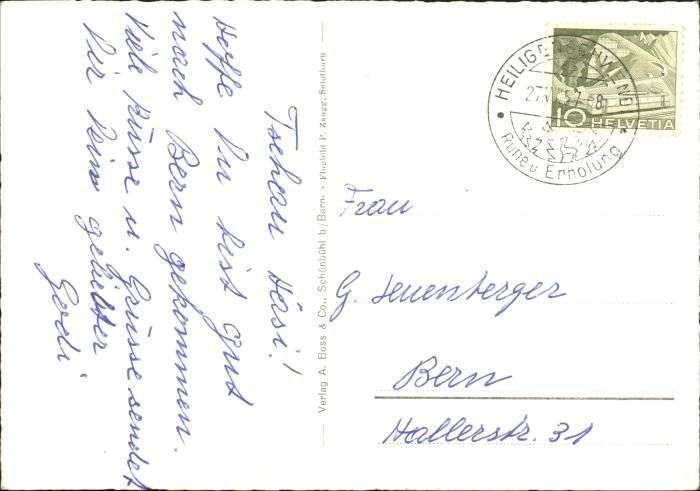 Tschau Hasi!
Hoffe Du bist gut
nach Bern gekommen.
Viele Küsse u. Grüsse sendet
Dir Dein geliebter
Godi
Verlag A. Boss & Co., Schönbühl b/Bern - Flugbild P. Zaugg, Solothurn
HEILIGENSCHWENDI
Ruhe u Erholung
10 HELVETIA
Frau
G. Leuenberger
Bern
Hallerstr. 31